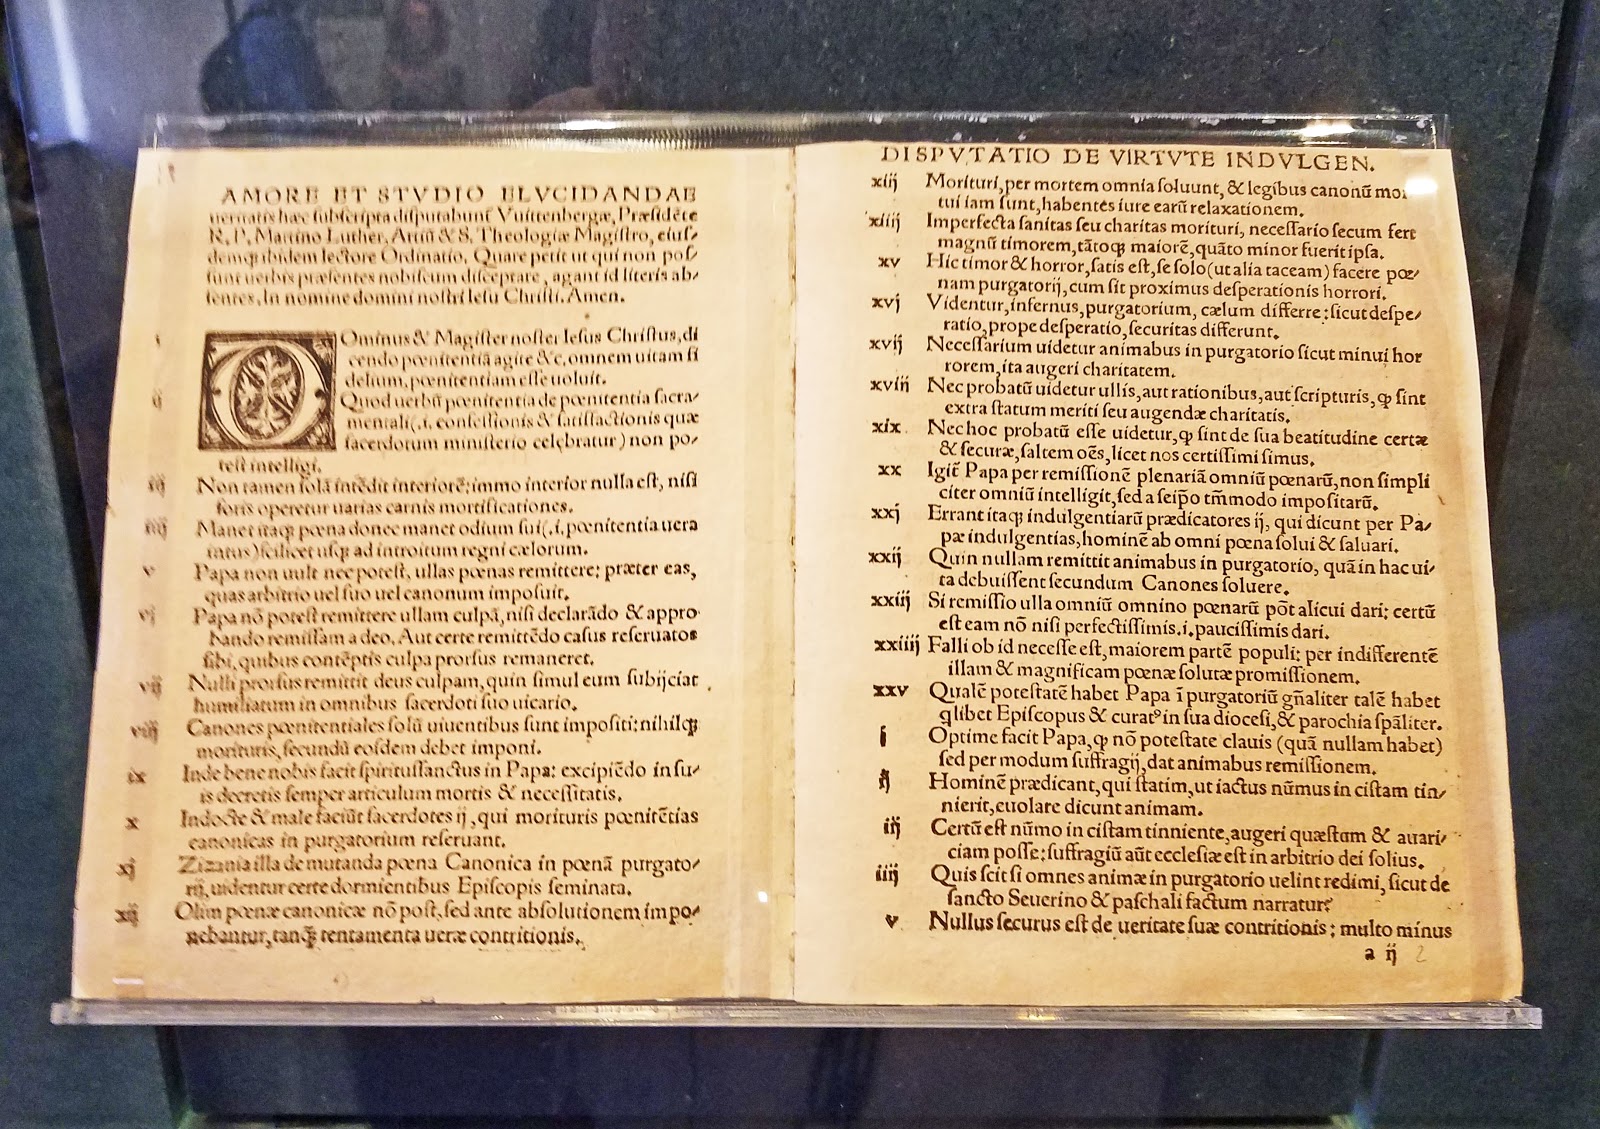 AMORE ET STVDIO ELVCIDANDAE
ueritatis hæc subscripta disputabunť Vuittenbergæ, Præsidēte
R. P. Martino Luther, Artiū & S. Theologiæ Magistro, eius/
demq; ibidem lectore Ordinatio. Quare petit ut qui non pos/
sunt uerbis præsentes nobiscum disceptare, agant id literis ab/
sentes. In nomine domini nostri Iesu Christi. Amen.
i DOminus & Magister noster Iesus Christus, di
cendo pœnitentiā agite &c. omnem uitam fi
delium, pœnitentiam esse uoluit.
ij Quod uerbū pœnitentia de pœnitentia sacra/
mentali (.i. confessionis & satisfactionis quæ
sacerdotum ministerio celebratur) non po/
test intelligi.
iij Non tamen solā intēdit interiorē: immo interior nulla est, nisi
foris operetur uarias carnis mortificationes.
iiij Manet itaq; pœna donec manet odium sui (.i. pœnitentia uera
intus) scilicet usq; ad introitum regni cælorum.
v Papa non uult nec potest, ullas pœnas remittere: præter eas,
quas arbitrio uel suo uel canonum imposuit.
vj Papa nō potest remittere ullam culpā, nisi declarādo & appro
bando remissam a deo. Aut certe remittēdo casus reseruatos
sibi, quibus contēptis culpa prorsus remaneret.
vij Nulli prorsus remittit deus culpam, quin simul eum subijciat
humiliatum in omnibus sacerdoti suo uicario.
viij Canones pœnitentiales solū uiuentibus sunt impositi: nihilq;
morituris, secundū eosdem debet imponi.
ix Inde bene nobis facit spiritussanctus in Papa: excipiēdo in su/
is decretis semper articulum mortis & necessitatis.
x Indocte & male faciūt sacerdotes ij, qui morituris pœnitētias
canonicas in purgatorium reseruant.
xj Zizania illa de mutanda pœna Canonica in pœnā purgato/
rij, uidentur certe dormientibus Episcopis seminata.
xij Olim pœnæ canonicæ nō post, sed ante absolutionem impo/
nebantur, tanq̄ tentamenta ueræ contritionis.
DISPVTATIO DE VIRTVTE INDVLGEN.
xiij Morituri, per mortem omnia soluunt, & legibus canonū mor
tui iam sunt, habentes iure earū relaxationem.
xiiij Imperfecta sanitas seu charitas morituri, necessario secum fert
magnū timorem, tātoq; maiorē, quāto minor fuerit ipsa.
xv Hic timor & horror, satis est, se solo (ut alia taceam) facere pœ/
nam purgatorij, cum sit proximus desperationis horrori.
xvj Videntur, infernus, purgatorium, cælum differre: sicut despe/
ratio, prope desperatio, securitas differunt.
xvij Necessarium uidetur animabus in purgatorio sicut minui hor
rorem, ita augeri charitatem.
xviij Nec probatū uidetur ullis, aut rationibus, aut scripturis, ꝙ sint
extra statum meriti seu augendæ charitatis.
xix Nec hoc probatū esse uidetur, ꝙ sint de sua beatitudine certæ
& securæ, saltem oēs, licet nos certissimi simus.
xx Igiť Papa per remissionē plenariā omniū pœnarū, non simpli
citer omniū intelligit, sed a seip̄o tm̄modo impositarū.
xxj Errant itaq; indulgentiarū prædicatores ij, qui dicunt per Pa/
pæ indulgentias, hominē ab omni pœna solui & saluari.
xxij Quin nullam remittit animabus in purgatorio, quā in hac ui/
ta debuissent secundum Canones soluere.
xxiij Si remissio ulla omniū omnino pœnarū pōt alicui dari: certū
est eam nō nisi perfectissimis .i. paucissimis dari.
xxiiij Falli ob id necesse est, maiorem partē populi: per indifferentē
illam & magnificam pœnæ solutæ promissionem.
xxv Qualē potestatē habet Papa ī purgatoriū gn̄aliter talē habet
q̄libet Episcopus & curatꝰ in sua diocesi, & parochia spāliter.
i Optime facit Papa, ꝙ nō potestate clauis (quā nullam habet)
sed per modum suffragij, dat animabus remissionem.
ij Hominē prædicant, qui statim, ut iactus nūmus in cistam tin/
nierit, euolare dicunt animam.
iij Certū est nūmo in cistam tinniente, augeri quæstum & auari/
ciam posse: suffragiū aūt ecclesiæ est in arbitrio dei solius.
iiij Quis scit si omnes animæ in purgatorio uelint redimi, sicut de
sancto Seuerino & paschali factum narratur?
v Nullus securus est de ueritate suæ contritionis: multo minus
a ij 2